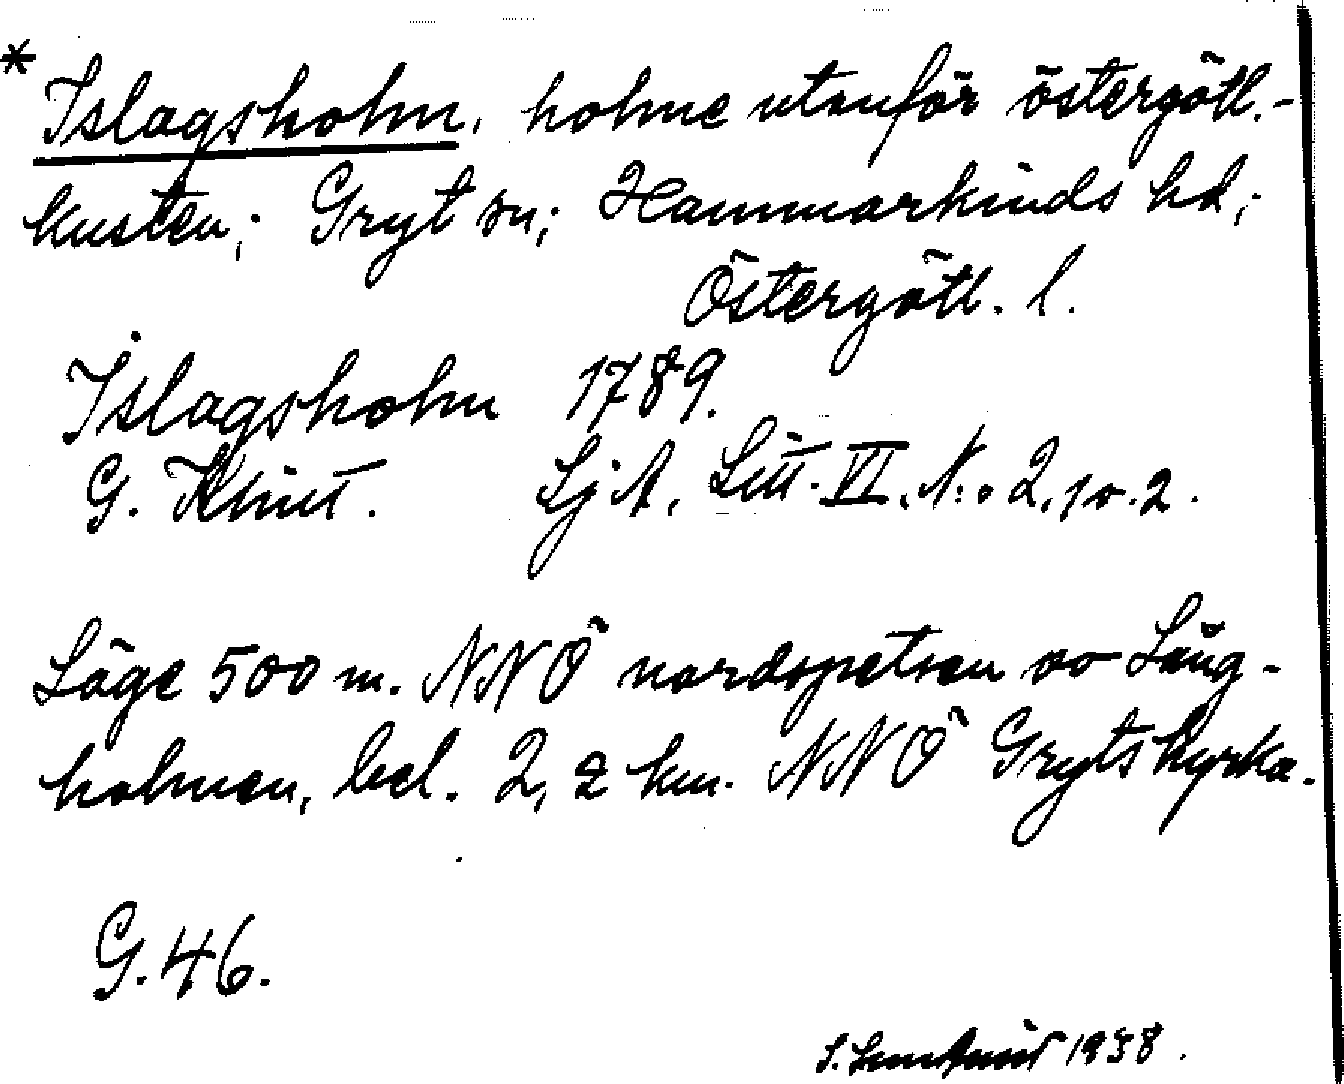 * Islagsholm, holme utanför östergötl.-
kusten; Gryt sn; Hammarkinds hd;
Östergötl. l.
Islagsholm 1789.
G. Klint. SjA, Litt. VI. N:o 2, 10. 2.
Läge 500 m. NNÖ nordspetsen av Lång-
holmen, bel. 2,2 km. NNÖ Gryts kyrka.
G. 46.
S. 1938.